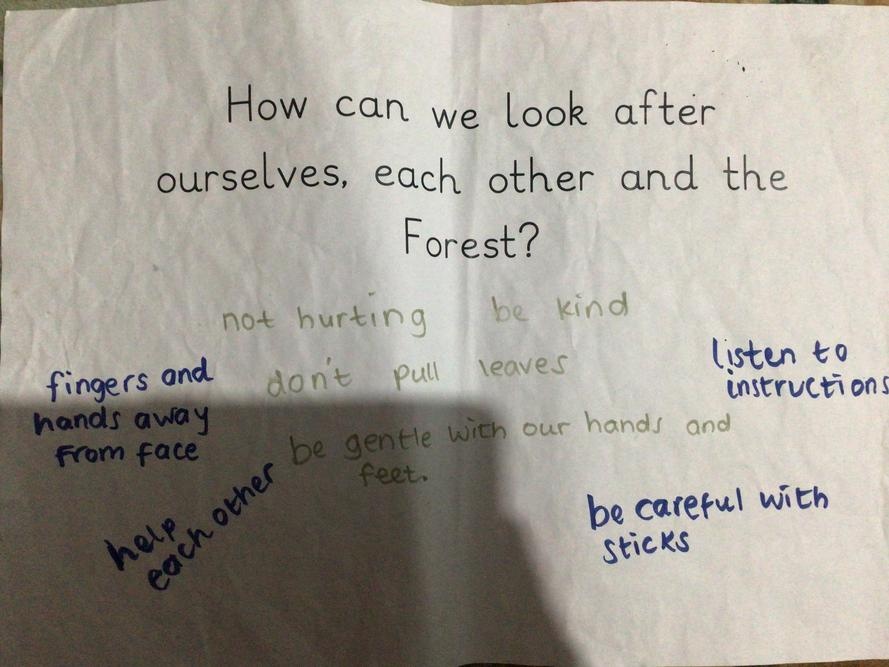 How can we look after
ourselves, each other and the
Forest?
not hurting
be kind
don't pull leaves
be gentle with our hands and
feet.
fingers and
hands away
from face
listen to
instructions
help
each other
be careful with
sticks